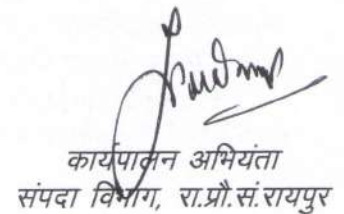 कार्यपालन अभियंता
संपदा विभाग, रा.प्रौ.सं.रायपुर